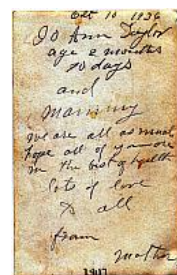 Oct 10 1936
Jo Ann Taylor
age 2 months
10 days
and
Mammy
we are all as usual
hope all of you are
in the best of health
lots of love
to all
from
Mother
1907